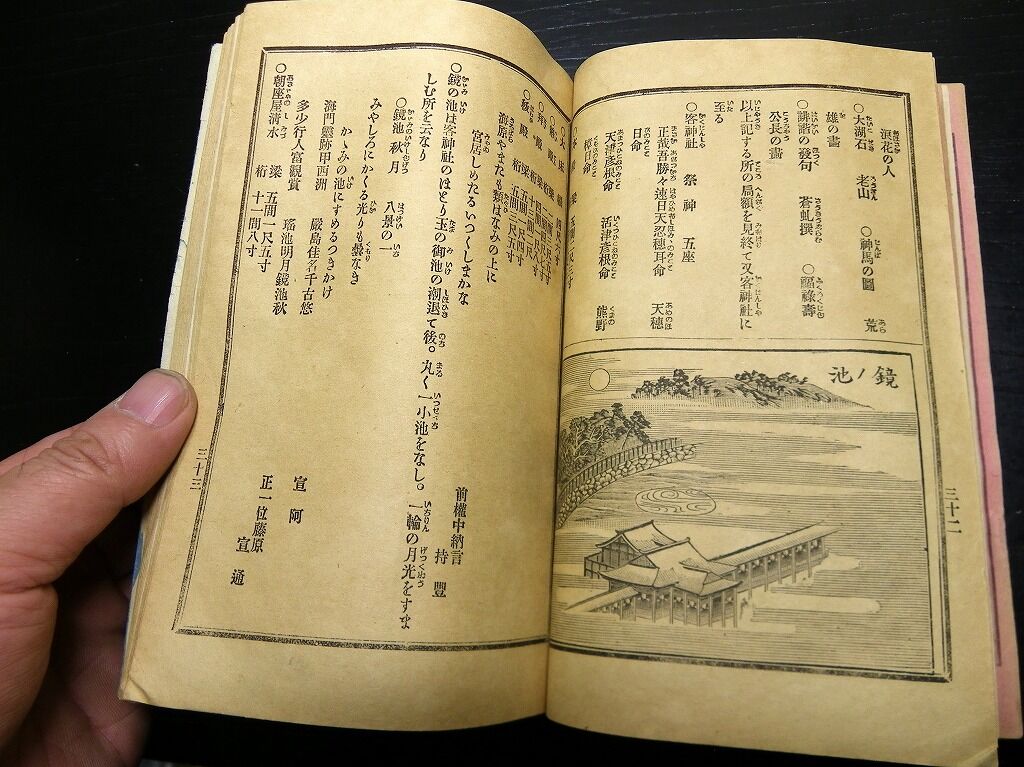 浪花の人
○大湖石 老山 ○神馬の圖 荒
雄の畵
○誹諧の發句 蒼虬撰 ○福祿壽
公長の畵
以上記する所の扁額を見終て又客神社に
至る
○客神社 祭神 五座
正哉吾勝々速日天忍穂耳命 天穂
日命
天津彦根命 活津彦根命 熊野
樟日命
鏡ノ池
三十二
海原やまたも類はなみの上に
宮居しめたるいつくしまかな
前權中納言 持豐
○鏡の池は客神社のほとり玉の御池の潮退て後。丸く一小池をなし。一輪の月光をすま
しむ所を云なり
○鏡池秋月 八景の一
みやしろにかくる光りも曇なき
かゝみの池にすめるつきかけ
宣阿
海門靈跡甲西湖 嚴島佳名千古悠
多少行人富觀賞 瑤池明月鏡池秋
正一位藤原宣通
○朝座屋清水 梁 五間一尺五寸
桁 十一間八寸
三十三